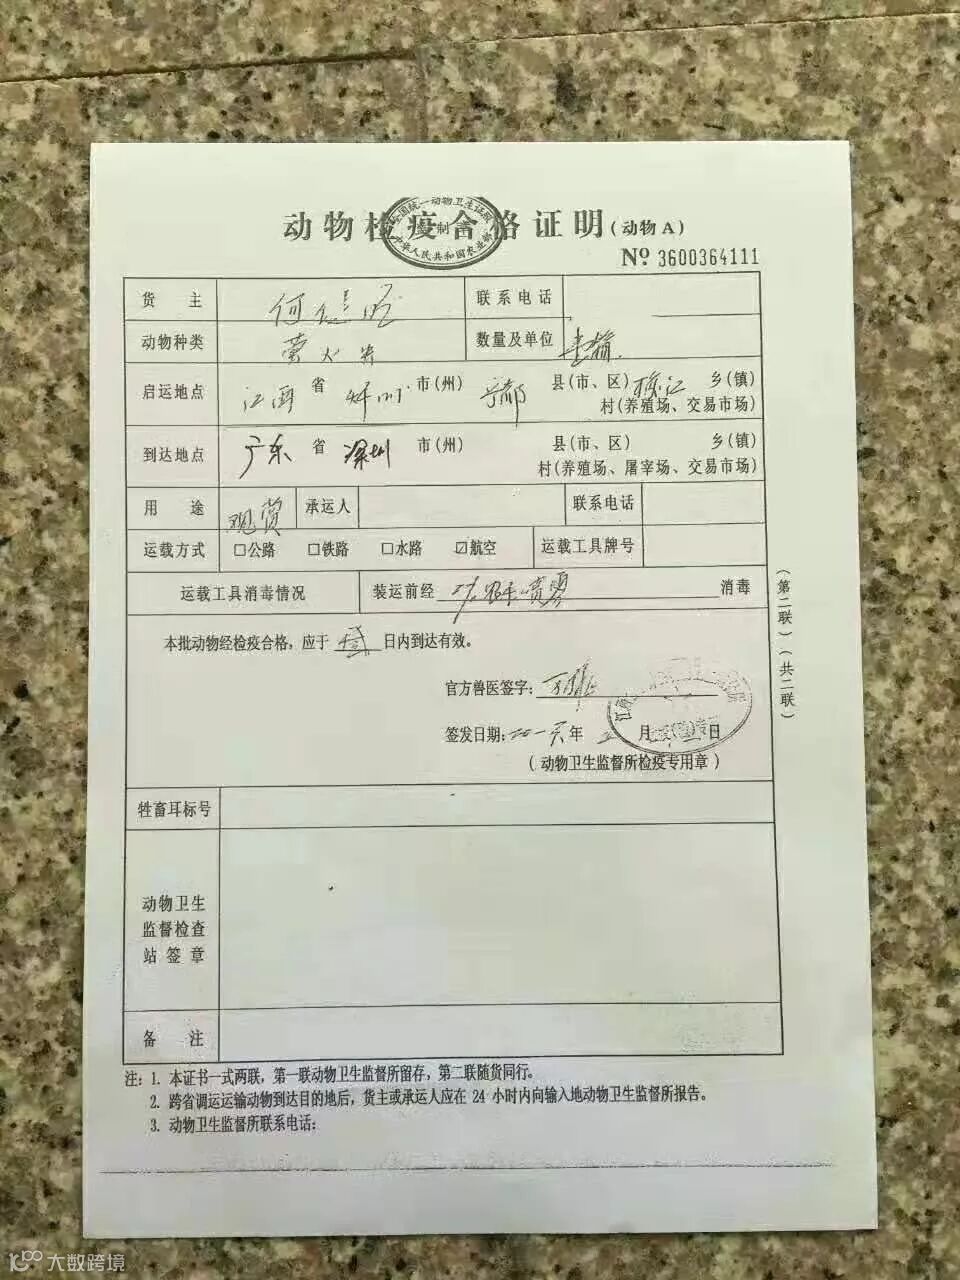 全国统一动物卫生证照
动物检疫合格证明(动物 A)
中华人民共和国农业部
№ 3600364111
货 主 何 联系电话
动物种类 萤火虫 数量及单位 壹箱
启运地点 江西 省 市(州) 于都 县(市、区) 乡(镇)
村(养殖场、交易市场)
到达地点 广东 省 深圳 市(州) 县(市、区) 乡(镇)
村(养殖场、屠宰场、交易市场)
用 途 观赏 承运人 联系电话
运载方式 □公路 □铁路 □水路 ☑航空 运载工具牌号
运载工具消毒情况 装运前经 喷雾 消毒
本批动物经检疫合格，应于 日内到达有效。
官方兽医签字:
签发日期: 二〇一六年 五 月 日
(动物卫生监督所检疫专用章)
牲畜耳标号
动物卫生
监督检查
站签章
备 注
(第二联)(共二联)
注: 1. 本证书一式两联，第一联动物卫生监督所留存，第二联随货同行。
2. 跨省调运运输动物到达目的地后，货主或承运人应在 24 小时内向输入地动物卫生监督所报告。
3. 动物卫生监督所联系电话:
大数跨境